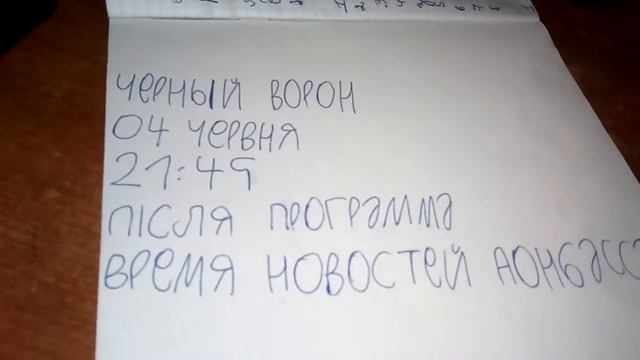 ЧЕРНЫЙ ВОРОН
04 ЧЕРВНЯ
21:49
ПІСЛЯ ПРОГРАММА
ВРЕМЯ НОВОСТЕЙ ДОНБАССА